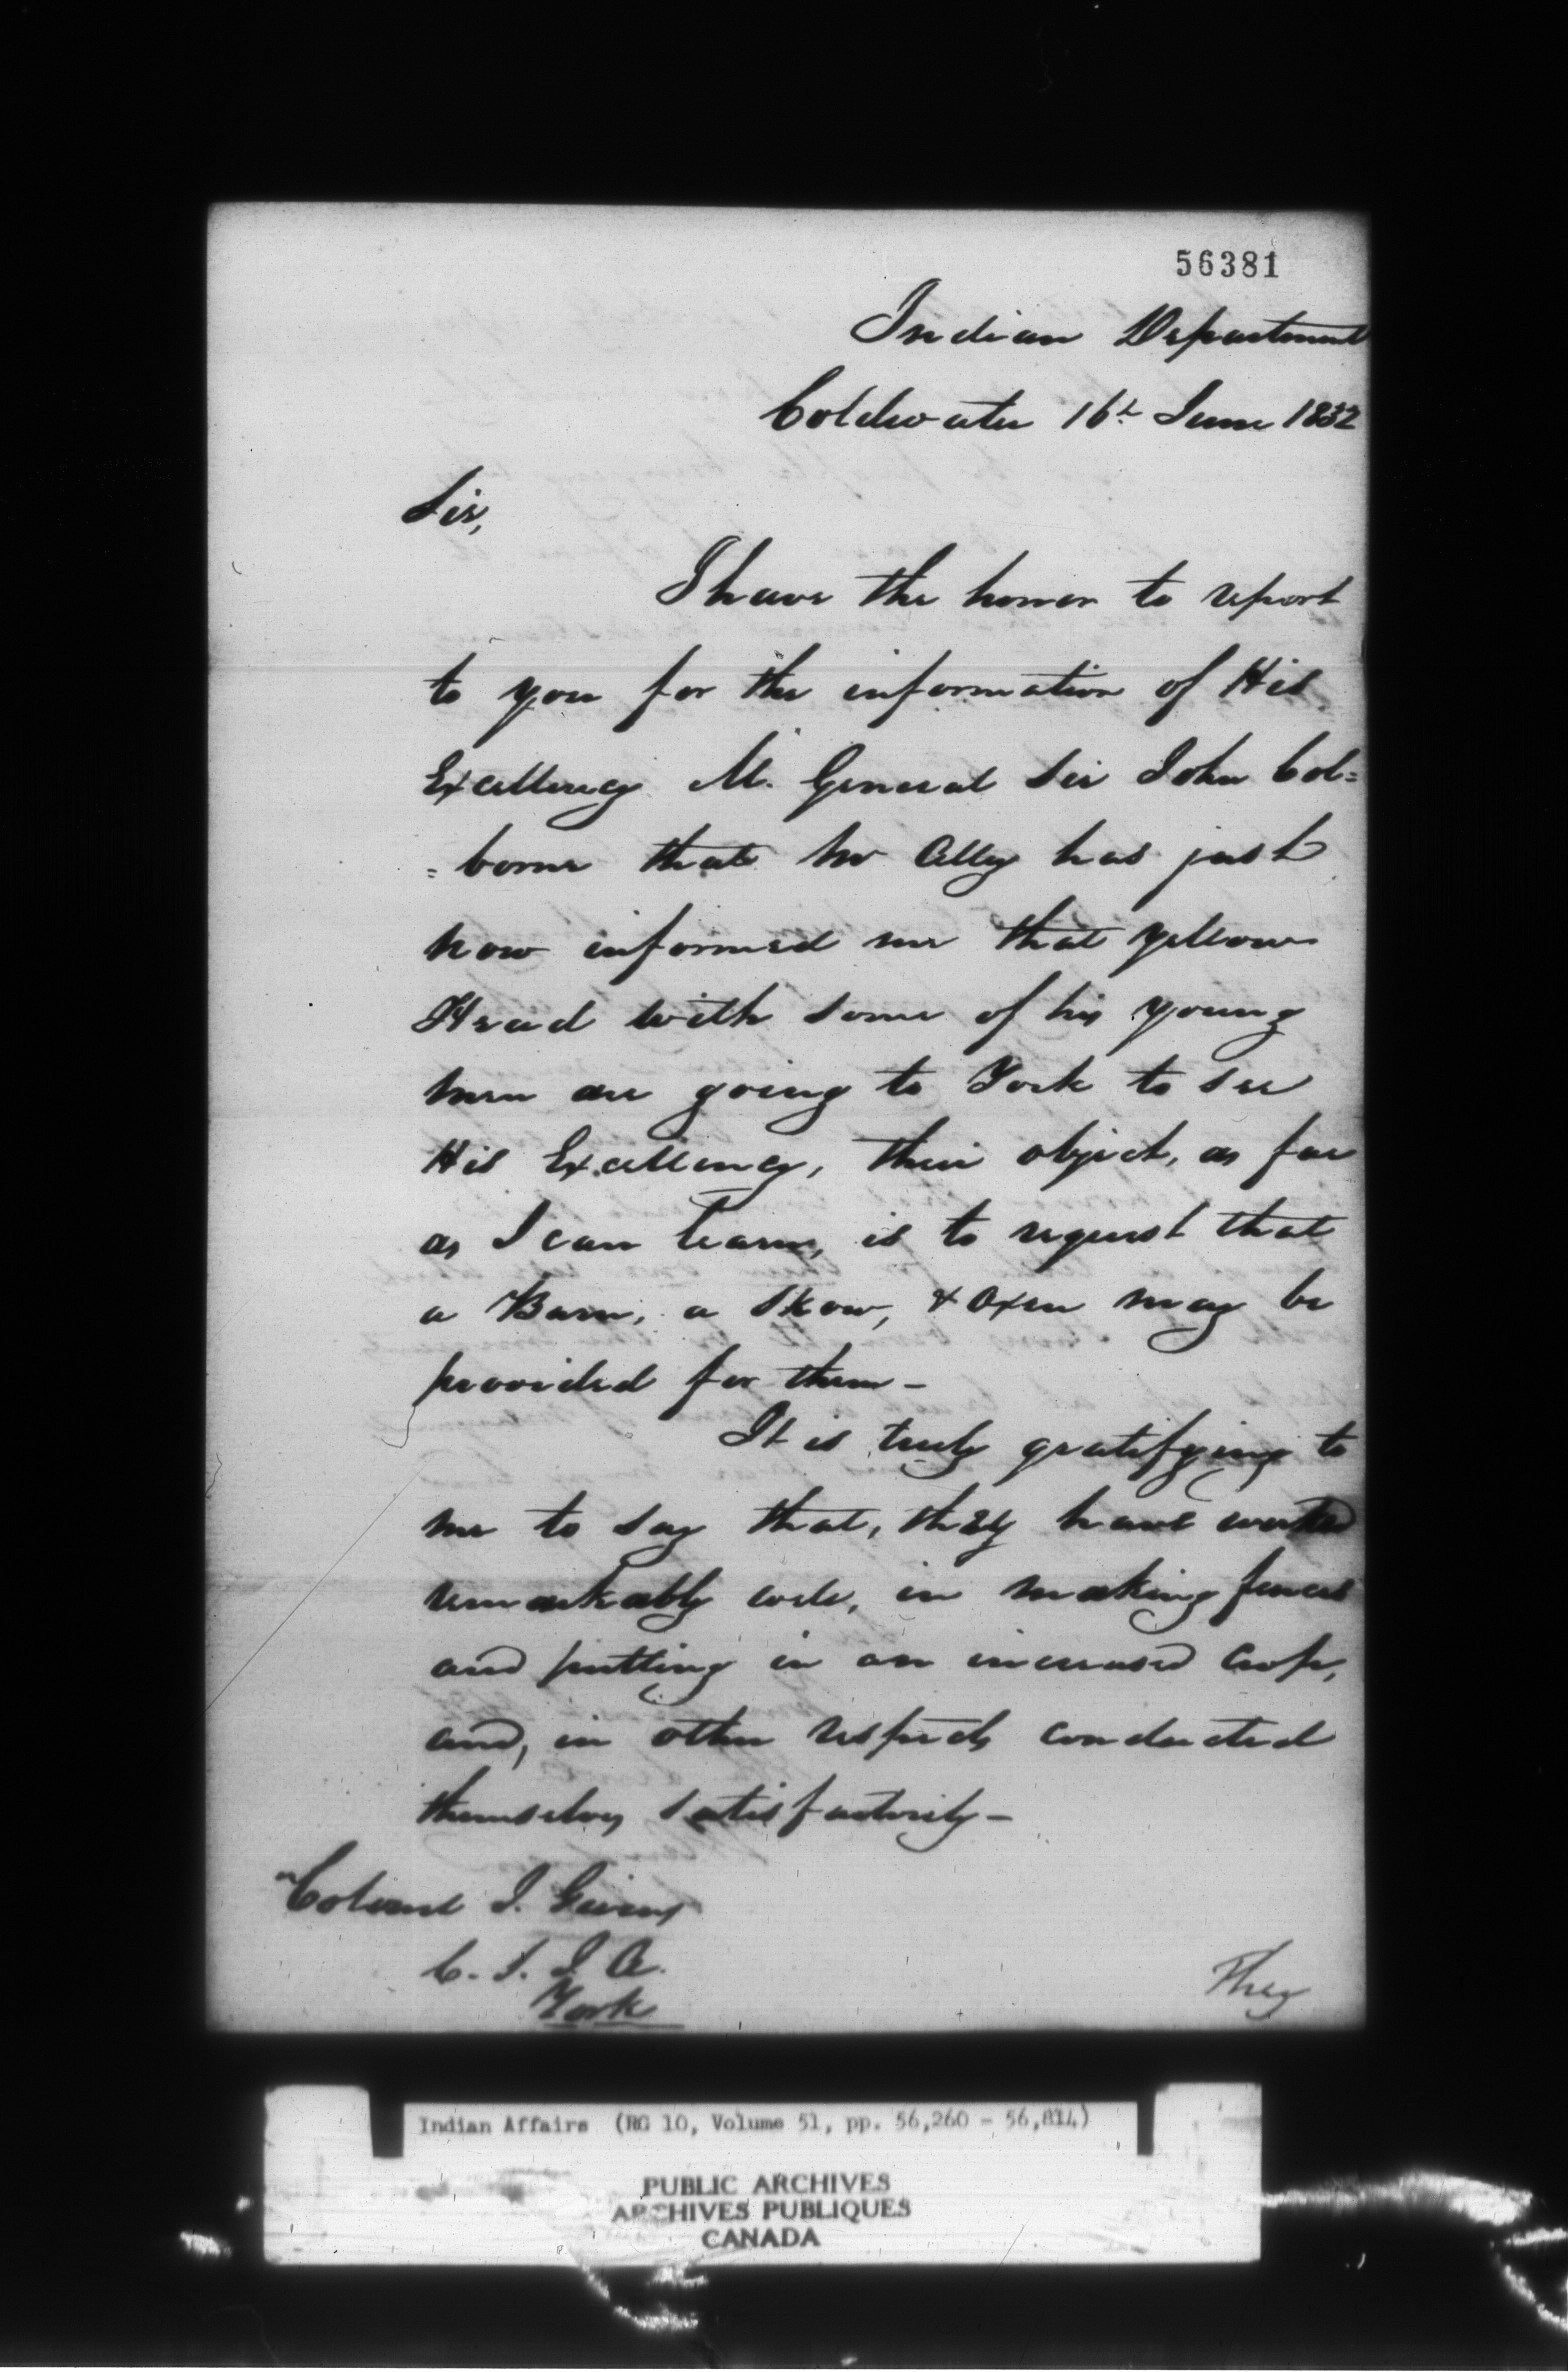 56381
Indian Department
Coldwater 16th June 1832
Sir,
I have the honor to report
to you for the information of His
Excellency M. General Sir John Col=
=borne that Mr Alley has just
now informed me that Yellow
Head with some of his young
men are going to York to see
His Excellency, their object, as far
as I can learn, is to request that
a Barn, a Skow, & Oxen may be
provided for them -
It is truly gratifying to
me to say that, they have worked
remarkably well, in making fences
and putting in an increased Crop,
and, in other respects conducted
themselves satisfactorily -
Colonel J. Givins
C. S. I. A.
York
They
Indian Affairs (RG 10, Volume 51, pp. 56,260 - 56,814)
PUBLIC ARCHIVES
ARCHIVES PUBLIQUES
CANADA